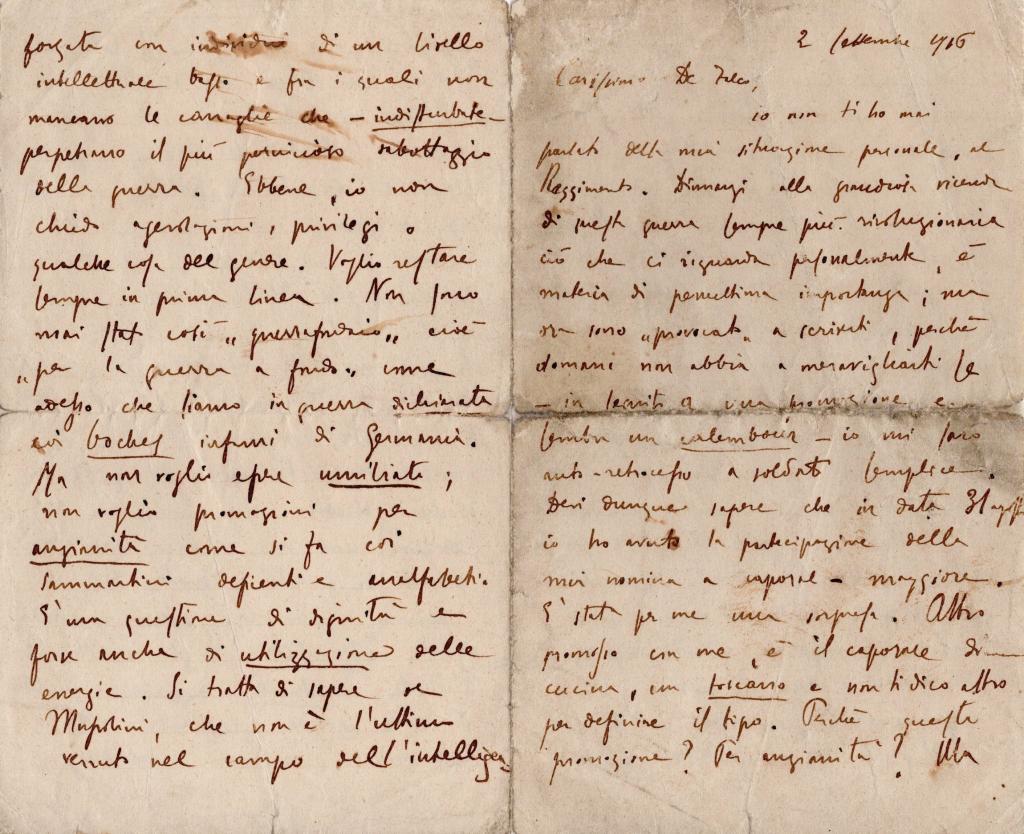 2 Settembre 1916
Carissimo De Falco,
io non ti ho mai
parlato della mia situazione personale, al
Reggimento. Dinnanzi alla grandiosa vicenda
di questa guerra sempre più rivoluzionaria
ciò che ci riguarda personalmente, è
materia di penultima importanza; ma
ora sono „provocato„ a scriverti, perché
domani non abbia a meravigliarti se
– in seguito a una promozione e
sembra un calembour – io mi sarò
auto-retrocesso a soldato semplice.
Devi dunque sapere che in data 31 agosto
io ho avuto la partecipazione della
mia nomina a caporal-maggiore.
E' stata per me una sorpresa. Altro
promosso con me, è il caporale di
cucina, un toscano e non ti dico altro
per definire il tipo. Perché questa
promozione? Per anzianità? Ma
forzata con individui di un livello
intellettuale basso e fra i quali non
mancano le canaglie che – indisturbate –
perpetrano il più pernicioso sabottaggio
della guerra. Ebbene, io non
chiedo agevolazioni, privilegi o
qualche cosa del genere. Voglio restare
sempre in prima linea. Non sono
mai stato così „guerrafondaio„ cioè
„per la guerra a fondo„ come
adesso che siamo in guerra dichiarata
coi boches infami di Germania.
Ma non voglio essere umiliato;
non voglio promozioni per
anzianità come si fa coi
sammartini deficienti e analfabeti.
E' una questione di dignità e
forse anche di utilizzazione delle
energie. Si tratta di sapere se
Mussolini, che non è l'ultimo
venuto nel campo dell'intelligen